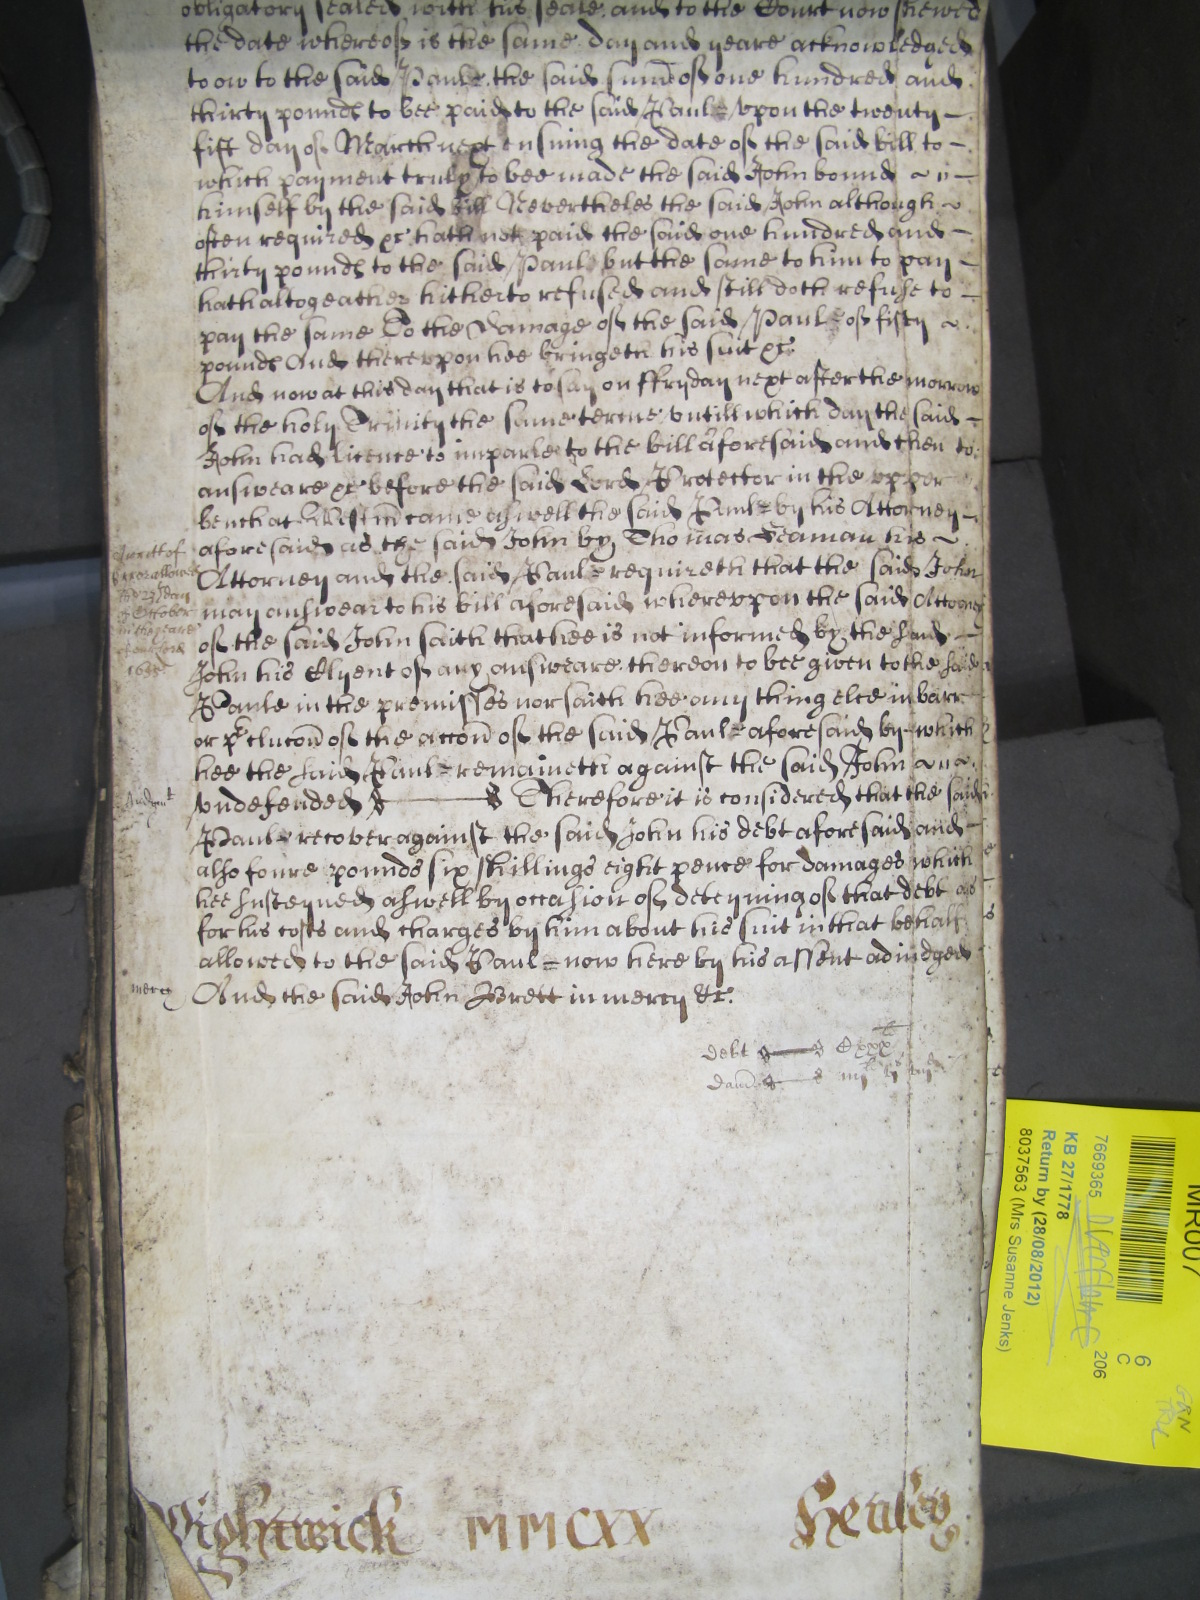 obligatory sealed with his seale and to the Court now shewed
the date whereof is the same day and yeare acknowledged
to ow to the said Paule the said sume of one hundred and
thirty pounds to bee paid to the said Paule vpon the twenty
fift day of March next ensuing the date of the said bill to
which payment truly to bee made the said John bound
himself by the said bill Nevertheles the said John although
often required &c hath not paid the said one hundred and
thirty pounds to the said Paul but the same to him to pay
hath altogeather hitherto refused and still doth refuse to
pay the same To the Damage of the said Paule of fifty
pounds And therevpon hee bringeth his suit &c
And now at this day that is to say on ffryday next after the morrow
of the holy Trinity the same terme vntill which day the said
John had licence to imparle to the bill aforesaid and then to
answeare &c before the said Lord Protector in the vpper
bench at Westm came aswell the said Paule by his Attorney
aforesaid as the said John by Thomas Seaman his
Attorney and the said Paule requireth that the said John
may answear to his bill aforesaid wherevpon the said Attorney
of the said John saith that hee is not informed by the said
John his Clyent of any answeare thereon to bee given to the said
Paule in the premisses nor saith hee any thing else in barr
or p'clucon of the accon of the said Paule aforesaid by which
hee the said Paule remaineth against the said John
vndefended Therefore it is considered that the said
Paule recover against the said John his debt aforesaid and
also foure pounds six shillings eight pence for damages which
hee susteyned aswell by occasion of deteyning of that debt as
for his costs and charges by him about his suit in that behalf
allowed to the said Paule now here by his assent adiudged
And the said John Brett in mercy &c.
A writt of
Error allowed
the 23 day
of October
in the yeare
of our Lord
1655
Judgmt
mercy
debt Cxxx li
dam iiij li vj s viij d
Wightwick MMCXX Henley
MR007
6
C
206
7669365
KB 27/1778
Return by (28/08/2012)
8037563 (Mrs Susanne Jenks)